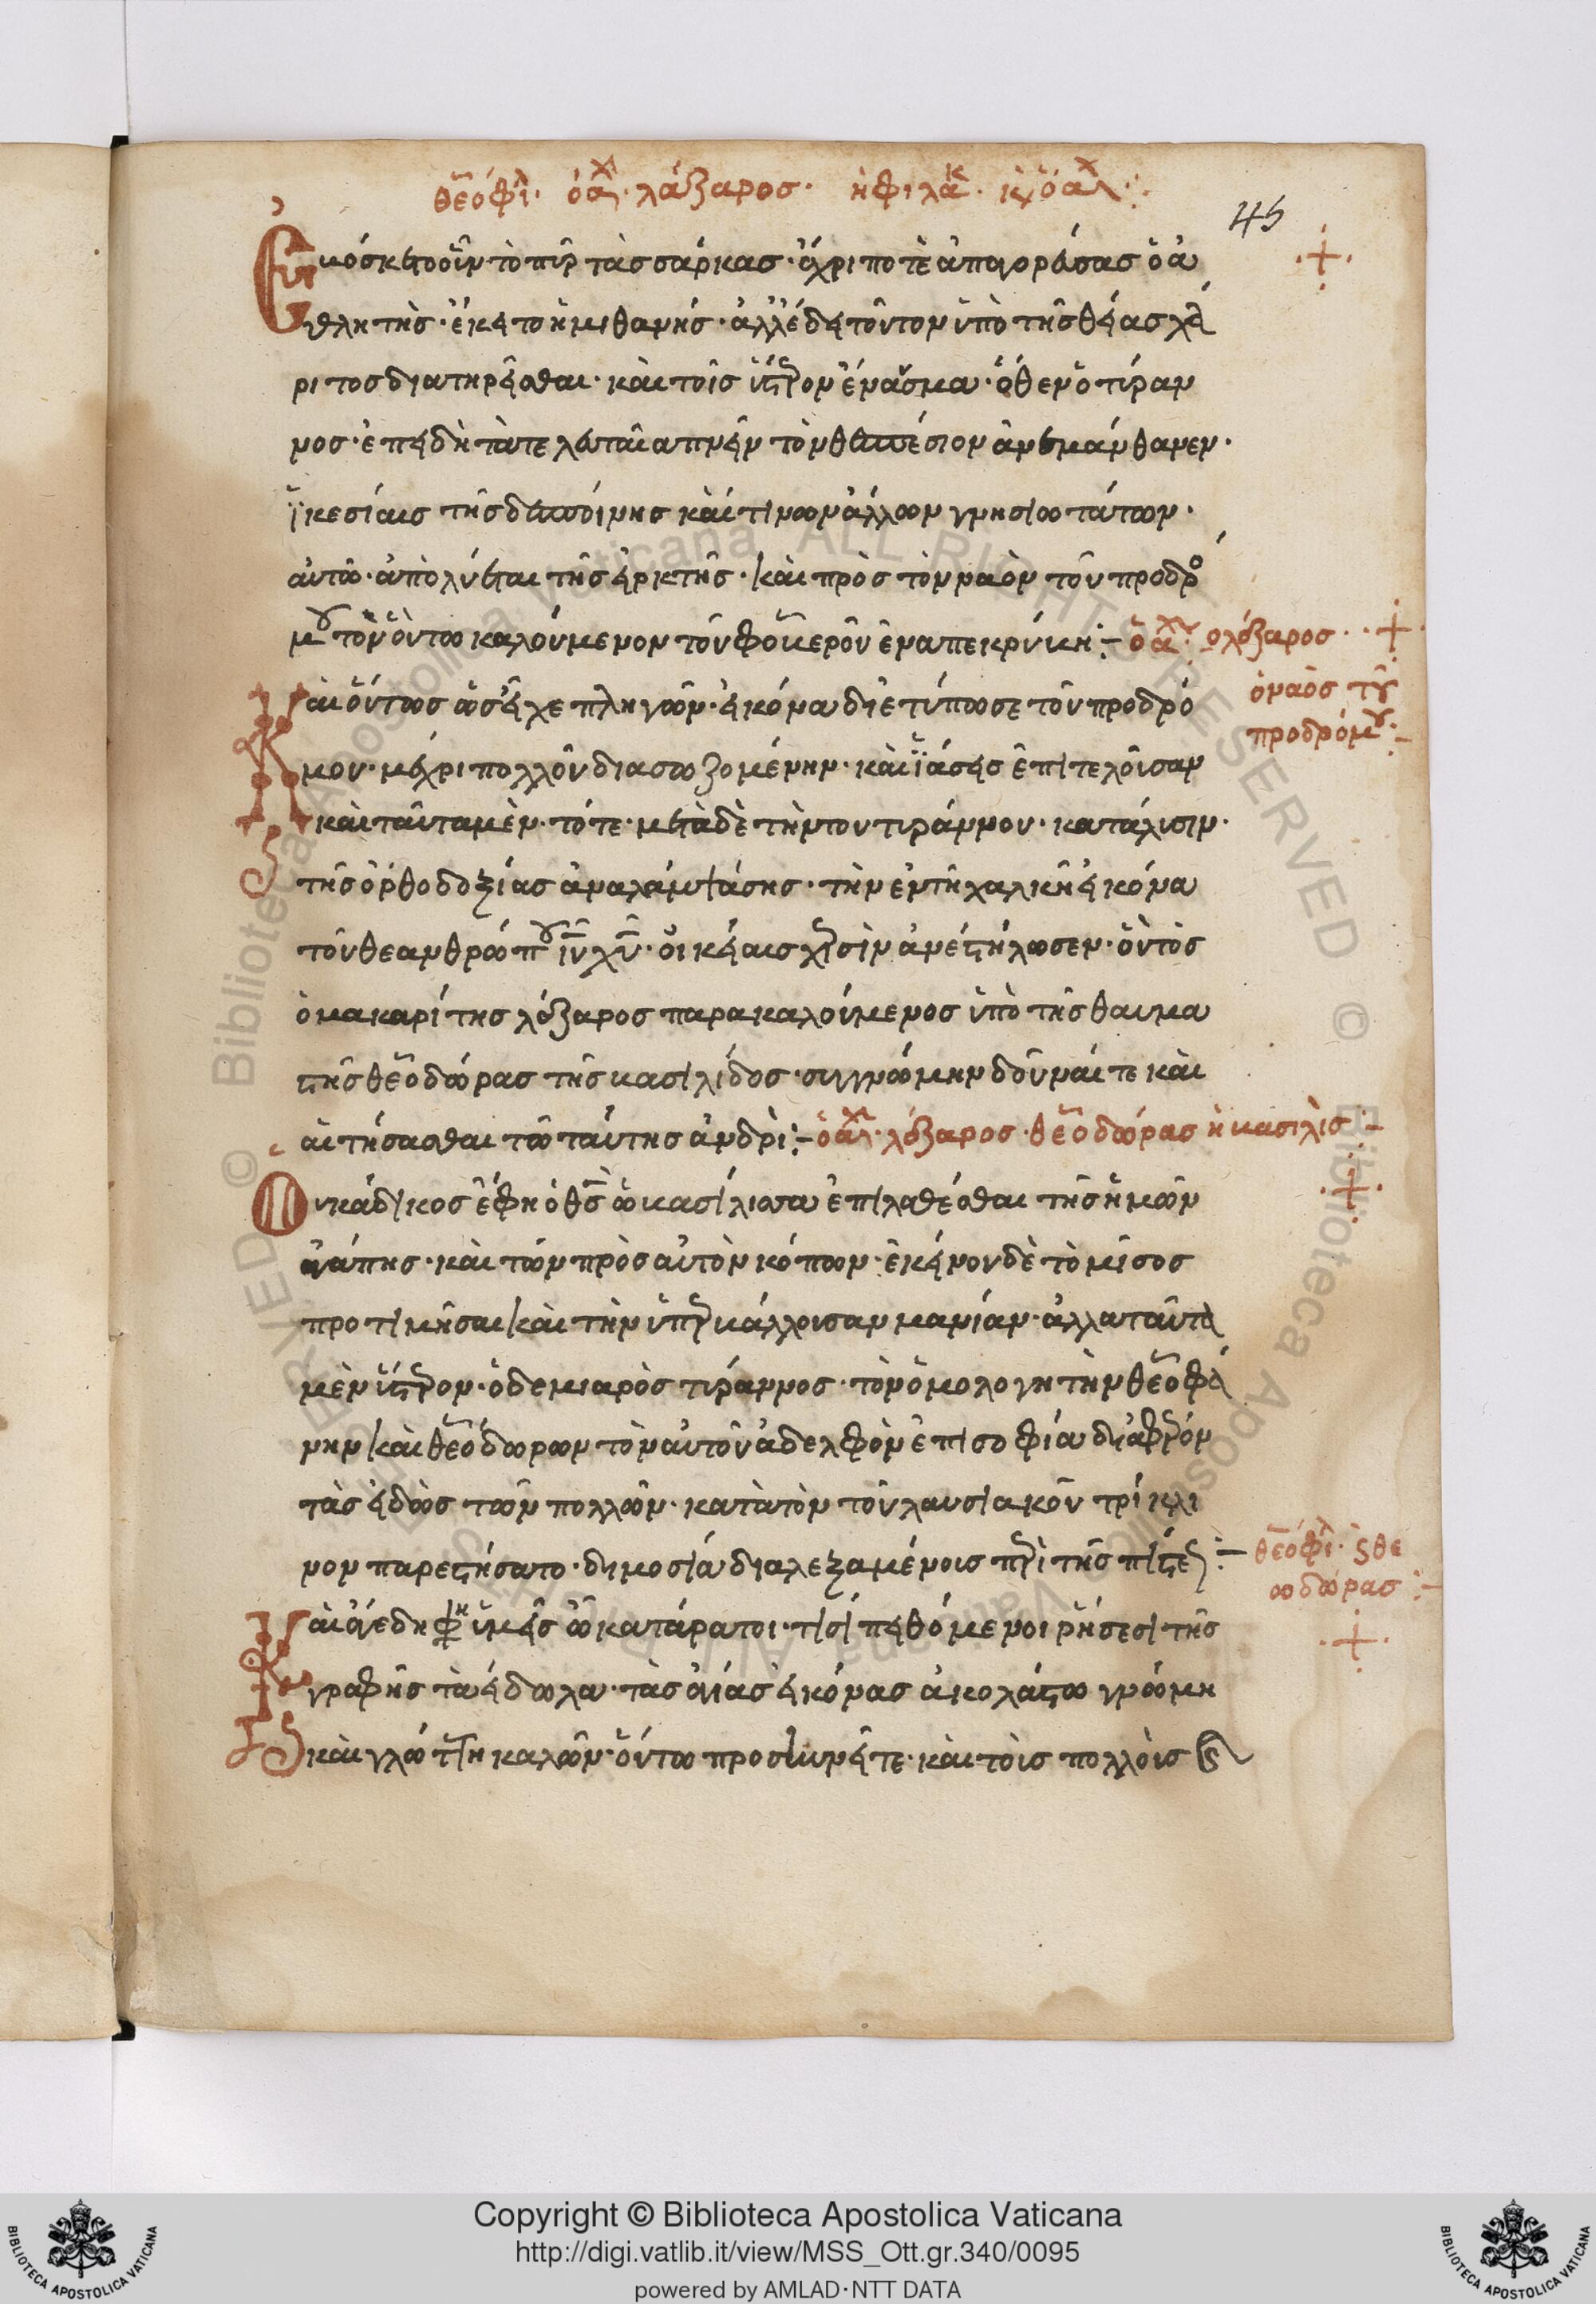 θεόφι^λ· ὁ ἅ^χ· λάζαρος· ἡ φιλα^κ· κ ὁ ἅ^χ·:
45
Ἐπιβόσκετο οὖν τὸ πῦρ τὰς σάρκας· ἄχρι ποτὲ ἀπαγορεύσας ὁ ἀ
θλητὴς· ἔκειτο ἡμιθανής· ἀλλ' ἔδει τοῦτον ὑπὸ τῆς θείας χά
ριτος διατηρεῖσθαι· καὶ τοῖς ὕστερον ἔναυσμα· ὅθεν ὁ τύραν
νος· ἐπειδὴ τὰ τελευταῖα πνεῖν τὸν θεσπέσιον ἀνεμάνθανεν·
ἱκεσίαις τῆς δεσποίνης καί τινων ἄλλων γνησιωτάτων·
αὐτῶ· ἀπολύεται τῆς εἱρκτῆς· καὶ πρὸς τὸν ναὸν τοῦ προδρό
μου τὸν οὕτω καλούμενον τοῦ φοβεροῦ ἐναπεκρύβη:– ὁ ἅ^χ· ὁ λάζαρος·
ὁ ναὸς τοῦ
προδρόμου:–
Καὶ ὄντως ὡς εἶχε πληγῶν· εἰκόνα διετύπωσε τοῦ προδρό
μου· μέχρι πολλοῦ διασωζομένην· καὶ ἰάσεις ἐπιτελοῦσαν
καὶ ταῦτα μὲν· τότε· μετὰ δὲ τὴν του τυράννου· κατάλυσιν·
τῆς ὀρθοδοξίας ἀναλαμψάσης· τὴν ἐν τῆ χαλκῆ εἰκόνα
τοῦ θεανθρώπου ιυ χυ· οἰκείαις χερσὶν ἀνεστήλωσεν· οὗτος
ὁ μακαρίτης λάζαρος παρακαλούμενος ὑπὸ τῆς θαυμα
στῆς θεοδώρας τῆς βασιλίδος· συγγνώμην δοῦναί τε καὶ
αἰτήσασθαι τῶ ταύτης ἀνδρὶ:– ὁ ἅ^χ· λάζαρος· θεοδώρας ἡ βασιλὶς:–
Οὐκ ἄδικος ἔφη ὁ θς ὦ βασίλισσα ἐπιλαθέσθαι τῆς ἡμῶν
ἀγάπης· καὶ τῶν πρὸς αὐτὸν κόπων· ἐκείνου δὲ τὸ μῖσος
προτιμῆσαι καὶ τὴν ὑπερβάλλουσαν μανίαν· ἀλλα ταῦτα
μὲν ὕστερον· ὁ δε μιαρὸς τύραννος· τὸν ὁμολογητὴν θεοφά
νην καὶ θεόδωρων τὸν αὐτοῦ ἀδελφὸν ἐπὶ σοφία διαφέρον
τὰς εἰδὼς τῶν πολλῶν· κατὰ τὸν τοῦ λαυσιακοῦ τρίκλι
νον παρεστήσατο· δημοσία διαλεξαμένοις περὶ τῆς πίστεως:– θεόφι^λ· ς θε
ωδώρας:–
Καὶ ἄγε δὴ φη ὑμεῖς ὦ κατάρατοι· τίσι πειθόμενοι ῥήσεσι τῆς
γραφῆς τὰ εἴδωλα· τὰς ἁγίας εἰκόνας ἀκολάστω γνώμη
καὶ γλώττη καλῶν· οὕτω προσκυνεῖτε· καὶ τοῖς πολλοῖς
Copyright © Biblioteca Apostolica Vaticana
http://digi.vatlib.it/view/MSS_Ott.gr.340/0095
powered by AMLAD·NTT DATA
BIBLIOTECA APOSTOLICA VATICANA
BIBLIOTECA APOSTOLICA VATICANA